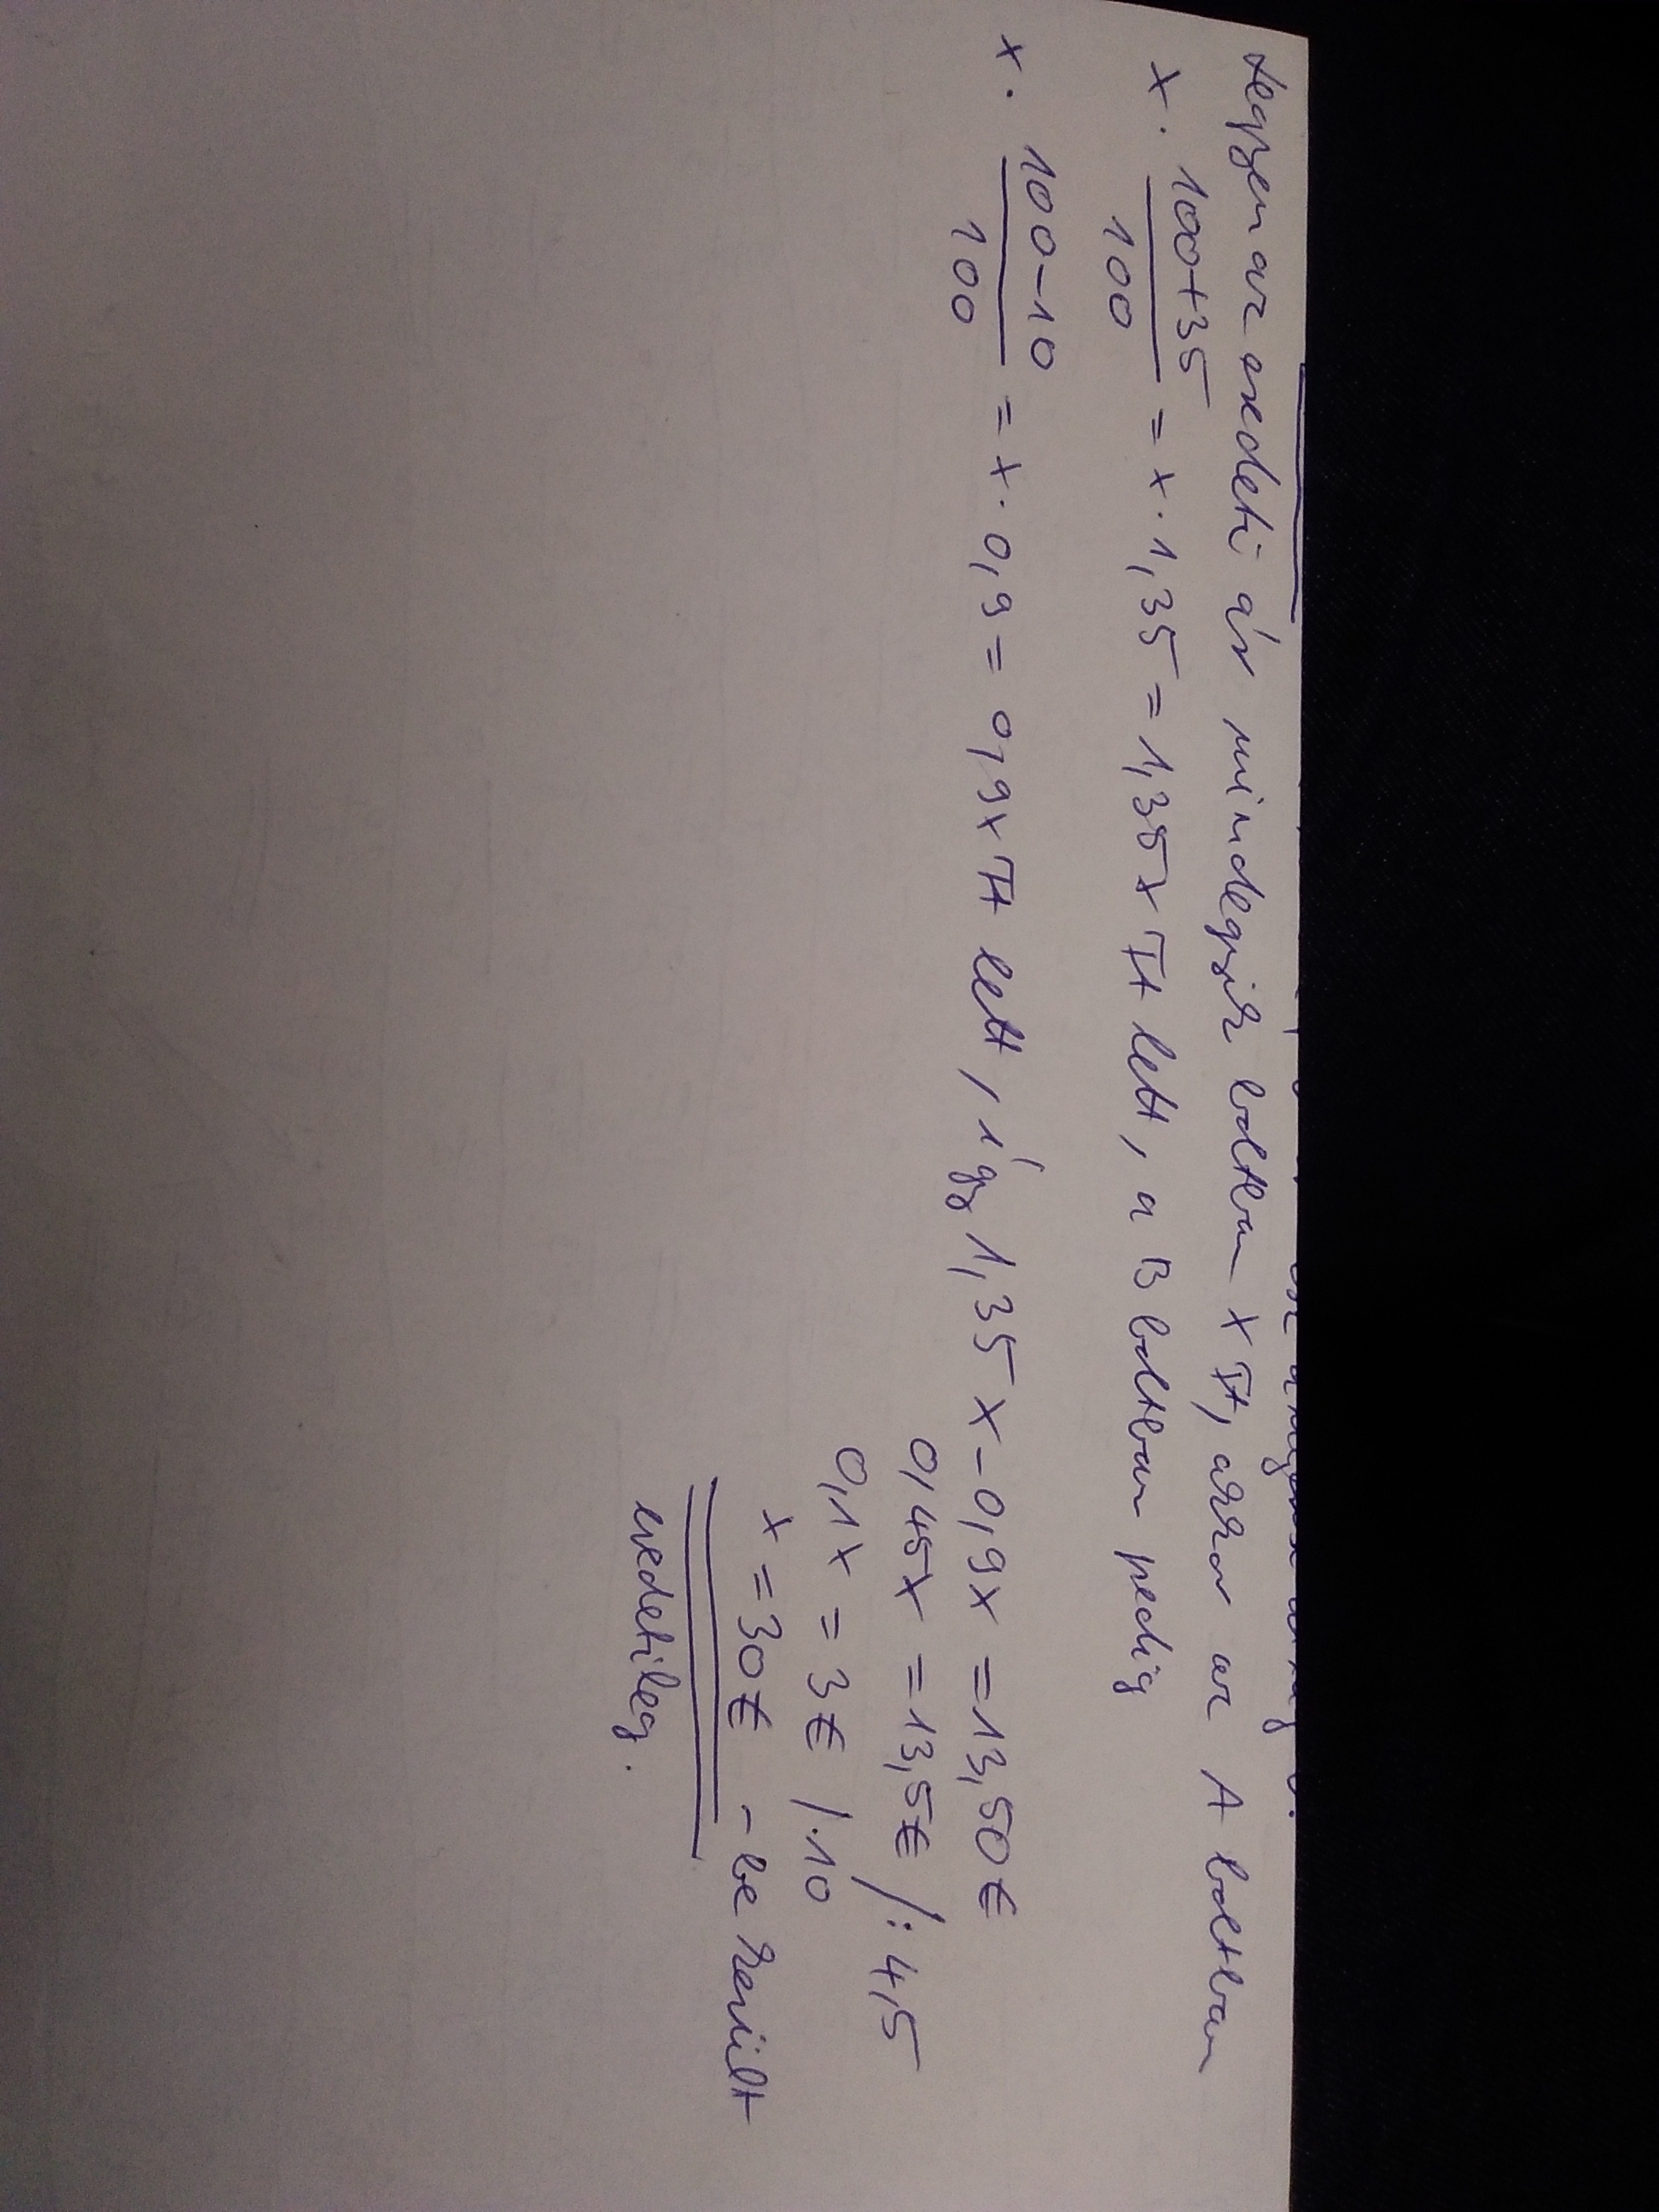 Legyen az eredeti ár mindegyik boltban x Ft, akkor az A boltban
x · (100+35)/100 = x · 1,35 = 1,35x Ft lett, a B boltban pedig
x · (100-10)/100 = x · 0,9 = 0,9x Ft lett, így 1,35x - 0,9x = 13,50 €
0,45x = 13,5€ /: 4,5
0,1x = 3€ /·10
x = 30€ - be került
eredetileg.